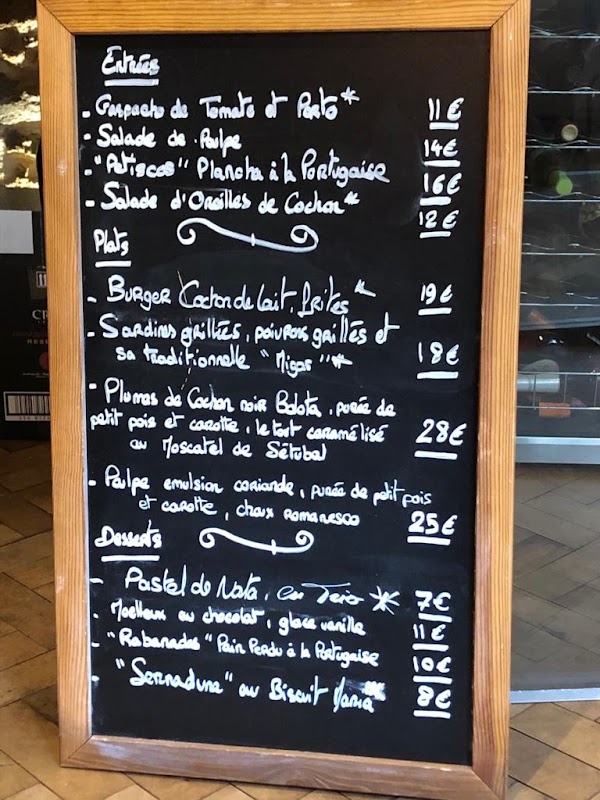 Entrées
- Gaspacho de Tomate et Porto* 11€
- Salade de Poulpe 14€
- "Petiscos" Plancha à la Portugaise 16€
- Salade d'Oreilles de Cochon* 12€
Plats
- Burger Cochon de lait, frites* 19€
- Sardines grillées, poivrons grillés et
sa traditionnelle "Migas"* 18€
- Plumas de Cochon noir Bolota, purée de
petit pois et carotte, le tout caramélisé
au Moscatel de Sétubal 28€
- Poulpe emulsion coriandre, purée de petit pois
et carotte, choux romanesco 25€
Desserts
- Pastel de Nata, * 7€
- Moelleux au chocolat, glace vanille 11€
- "Rabanadas" Pain Perdu à la Portugaise 10€
- "Serradura" au Biscuit Maria* 8€
CR